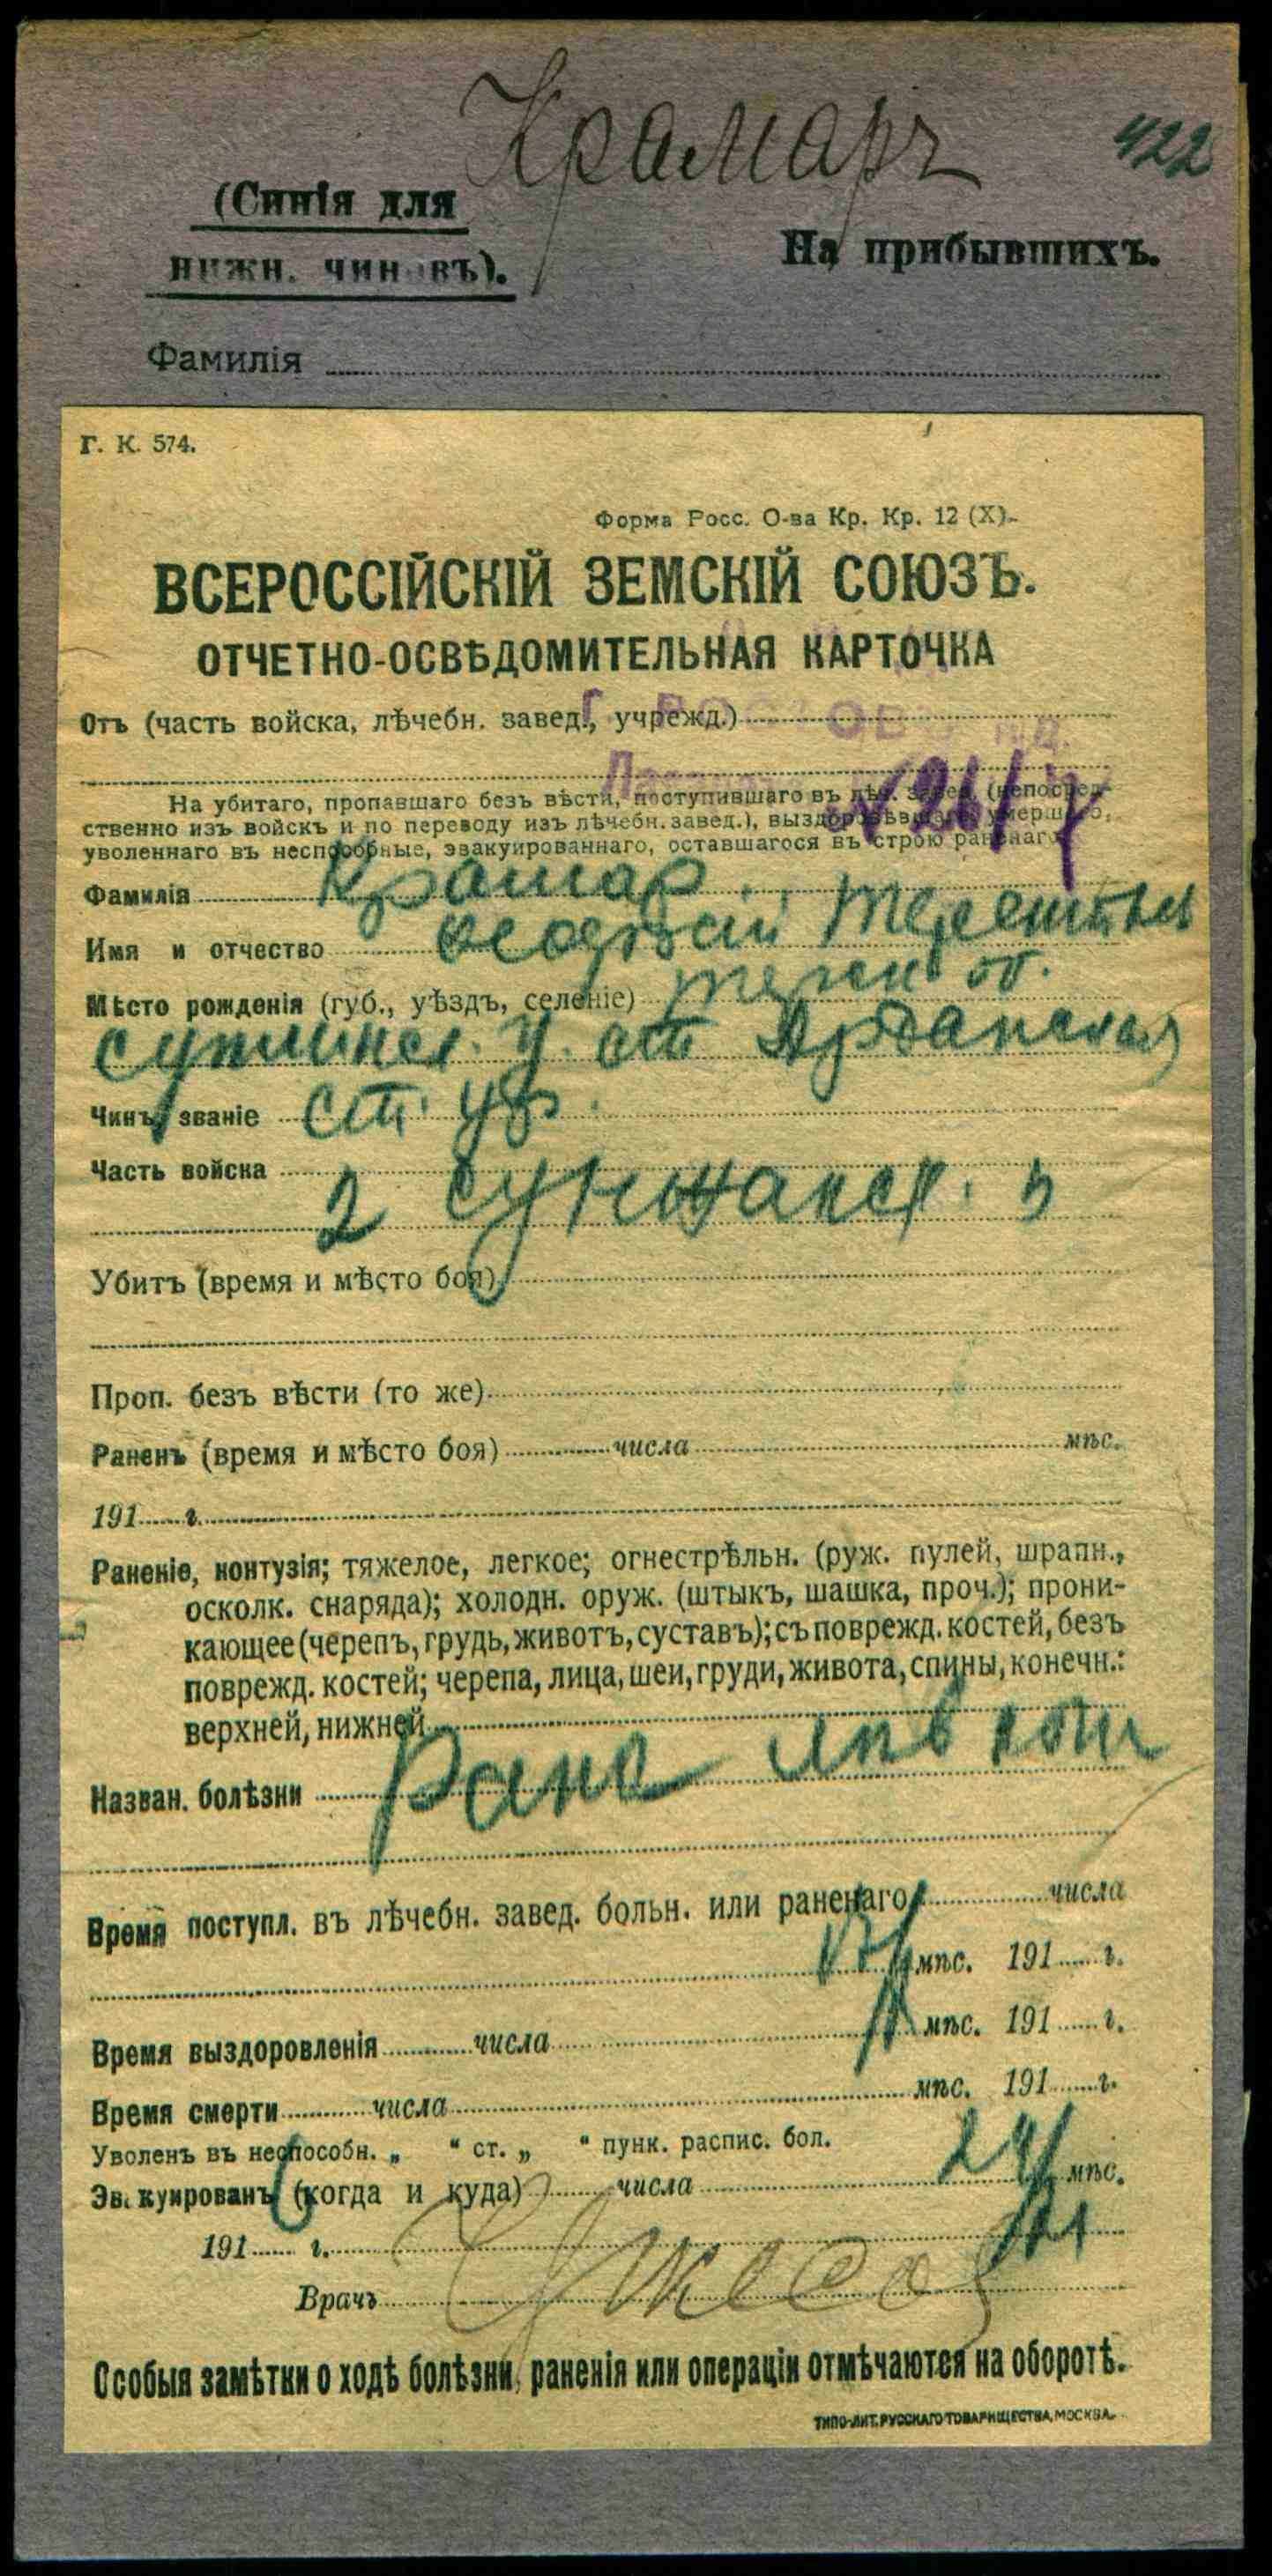 Крамарь
422
(Синія для
нижн. чиновъ).
На прибывшихъ.
Фамилія
Г. К. 574.
Форма Росс. О-ва Кр. Кр. 12 (X).
ВСЕРОССІЙСКІЙ ЗЕМСКІЙ СОЮЗЪ.
ОТЧЕТНО-ОСВѢДОМИТЕЛЬНАЯ КАРТОЧКА
Отъ (часть войска, лѣчебн. завед., учрежд.)
Г. РОСТОВЪ н/Д.
На убитаго, пропавшаго безъ вѣсти, поступившаго въ лѣч. завед. (непосред-
ственно изъ войскъ и по переводу изъ лѣчебн. завед.), выздоровѣвшаго, умершаго,
уволеннаго въ неспособные, эвакуированнаго, оставшагося въ строю раненаго.
Фамилія Крамар
Имя и отчество Терентьев
Мѣсто рожденія (губ., уѣздъ, селеніе) терск об.
Чинъ, званіе ст. ур.
Часть войска
2 Сунжанск. п
Убитъ (время и мѣсто боя)
Проп. безъ вѣсти (то же)
Раненъ (время и мѣсто боя) числа мѣс.
191 г.
Раненіе, контузія; тяжелое, легкое; огнестрѣльн. (руж. пулей, шрапн.,
осколк. снаряда); холодн. оруж. (штыкъ, шашка, проч.); прони-
кающее (черепъ, грудь, животъ, суставъ); съ поврежд. костей, безъ
поврежд. костей; черепа, лица, шеи, груди, живота, спины, конечн.:
верхней, нижней
Назван. болѣзни Рана
Время поступл. въ лѣчебн. завед. больн. или раненаго числа
мѣс. 191 г.
Время выздоровленія числа мѣс. 191 г.
Время смерти числа мѣс. 191 г.
Уволенъ въ неспособн. „ “ ст. „ “ пунк. распис. бол.
Эвакуированъ (когда и куда) числа мѣс.
191 г.
Врачъ
Особыя замѣтки о ходѣ болѣзни, раненія или операціи отмѣчаются на оборотѣ.
ТИПО-ЛИТ. РУССКАГО ТОВАРИЩЕСТВА, МОСКВА.